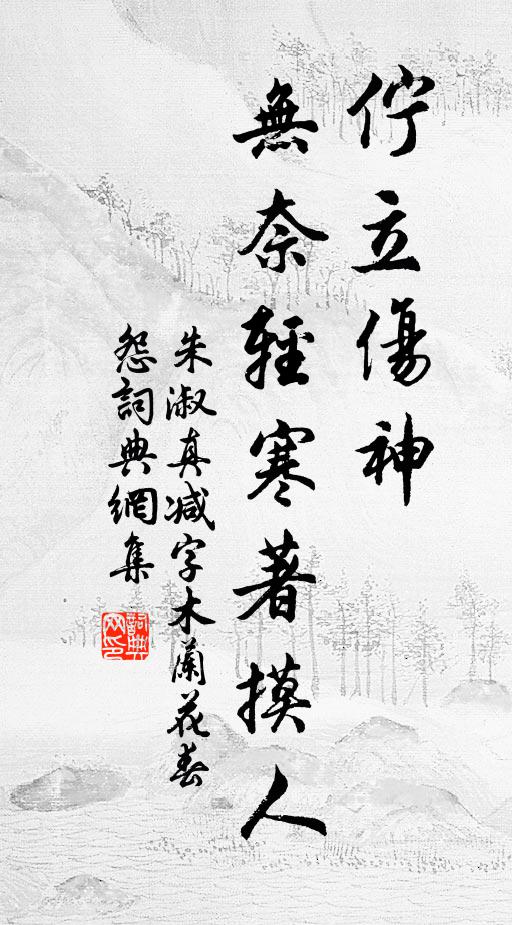 佇立傷神
無奈輕寒著摸人
朱淑真减字木蘭花春
怨詞典網集
詞典
网印